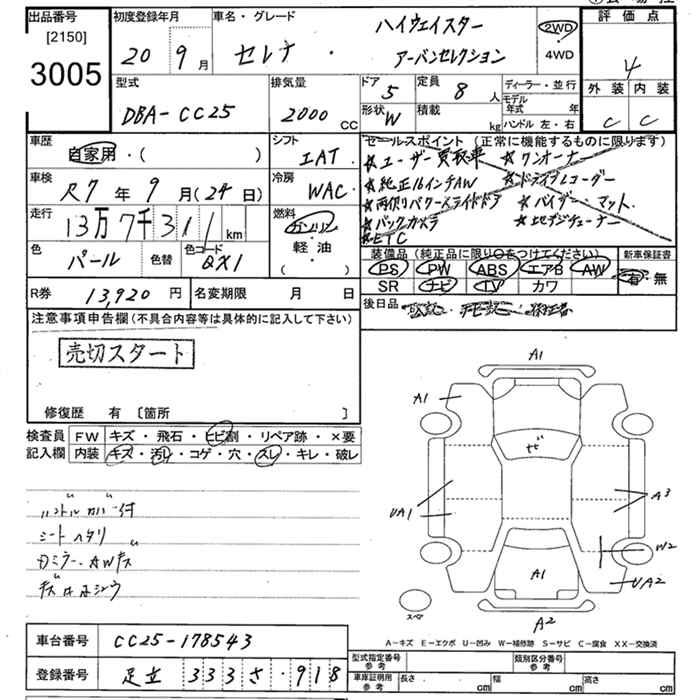 出品番号
[2150]
3005
初度登録年月
20 9月
車名・グレード
セレナ ・ ハイウェイスター
アーバンセレクション
2WD
・
4WD
評価点
4
外装 内装
C C
型式
DBA-CC25
排気量
2000 CC
ドア
5
定員
8 人
形状
W
積載
kg
ディーラー・並行
モデル年式 年
ハンドル 左・右
車歴
自家用・( )
シフト
IAT
車検
R7 年 9 月(24日)
冷房
WAC
走行
13万7千311 km
燃料
ガソリン
軽・油
( )
色
パール
色替
色コード
QX1
セールスポイント(正常に機能するものに限ります)
☆ユーザー買取車 ☆ワンオーナー
☆純正16インチAW ☆ドライブレコーダー
☆両側パワースライドドア ☆バイザー・マット
☆バックカメラ ☆地デジチューナー
☆ETC
装備品(純正品に限り○をつけてください)
PS PW ABS エアB AW
SR ナビ TV カワ
新車保証書
有・無
R券 13,920 円
名変期限 月 日
後日品
注意事項申告欄(不具合内容等は具体的に記入して下さい)
売切スタート
修復歴 有 [箇所 ]
検査員
記入欄
FW キズ・飛石・ヒビ割・リペア跡・×要
内装 キズ・汚れ・コゲ・穴・スレ・キレ・破レ
ハンドルカバー付
シートヘタリ
AWキズ
A1
A1
ナビ
UA1
A3
W2
A1
UA2
A2
スペア
A-キズ E-エクボ U-凹み W-補修跡 S-サビ C-腐食 XX-交換済
車台番号 CC25-178543
登録番号 足立 333 さ・918
型式指定番号
参考
類別区分番号
参考
車庫証明用
参考
長さ cm 幅 cm 高さ cm